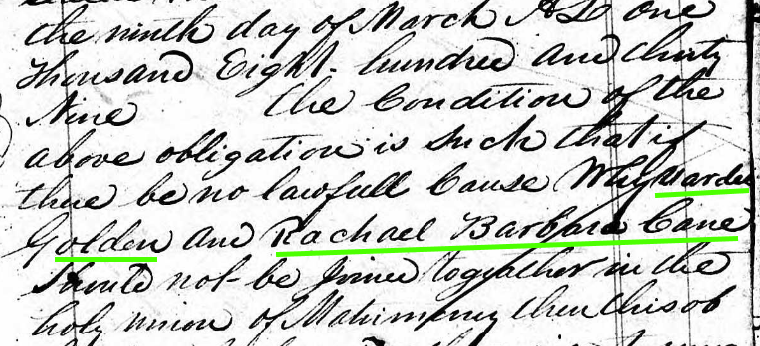 the ninth day of March AD one
Thousand Eight hundred and thirty
Nine the Condition of the
above obligation is such that if
thue be no lawfull Cause Why
Golden and Rachael Barbara Cane
not be Joined togather in the
holy union of then this ob